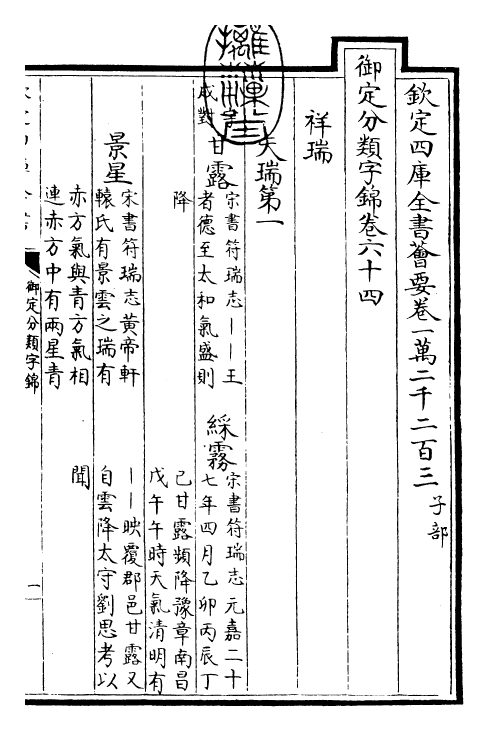 欽定四庫全書薈要卷一萬二千二百三 子部
御定分類字錦卷六十四
祥瑞
天瑞第一
成對
甘露
宋書符瑞志——王
者德至太和氣盛則
降
綵霧
宋書符瑞志元嘉二十
七年四月乙卯丙辰丁
己甘露頻降豫章南昌
戊午午時天氣清明有
——映覆郡邑甘露又
自雲降太守劉思考以
聞
景星
宋書符瑞志黃帝軒
轅氏有景雲之瑞有
赤方氣與青方氣相
連赤方中有兩星青
御定分類字錦
一